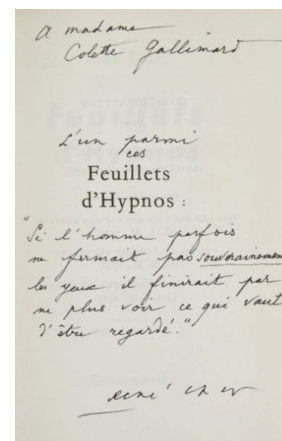 A madame
Colette Gallimard
L'un parmi
ces
Feuillets
d'Hypnos :
"Si l'homme parfois
ne fermait pas souverainement
les yeux il finirait par
ne plus voir ce qui vaut
d'être regardé."
René Char